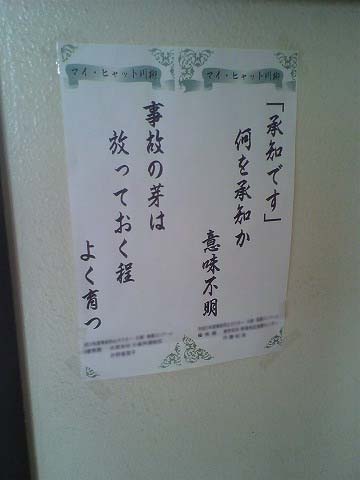 マイ・ヒヤット川柳
「承知です」
何を承知か
意味不明
マイ・ヒヤット川柳
事故の芽は
放っておく程
よく育つ